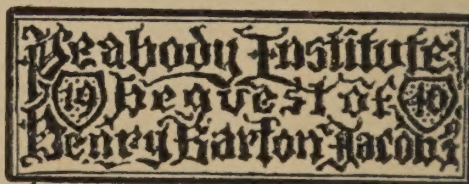 Peabody Institute
19 Bequest of 40
Henry Barton Jacobs